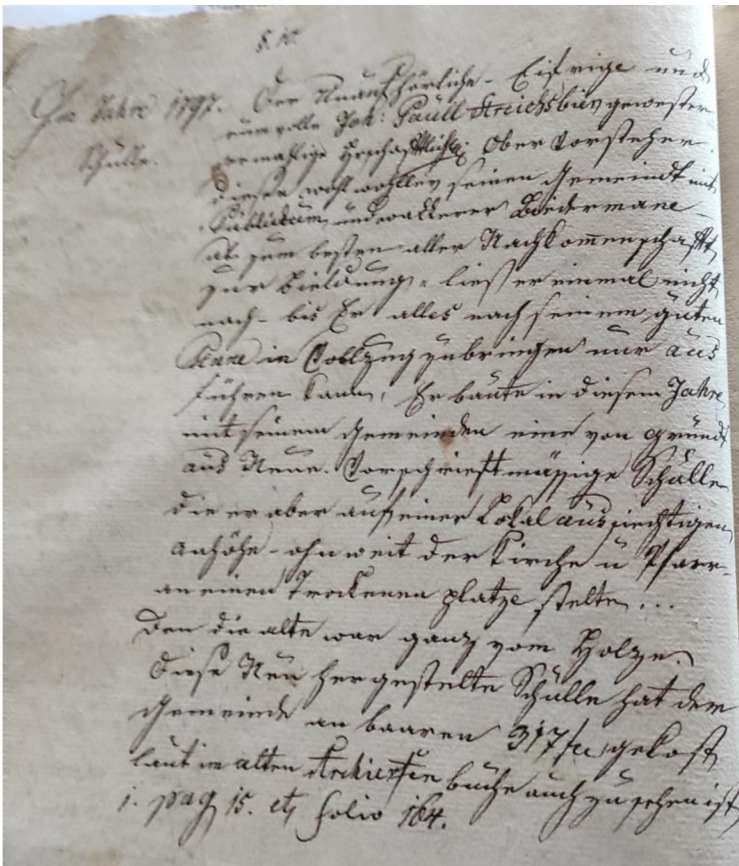 §. 10.
Im Jahre 1797. Der Unaufhörliche - Eifrige und
Schulle. rumvolle Joh: Paull Streichsbier gewester
ermahlige Ober Vorsteher.
dieser seinen Gemeindt mit
Publickum, und wackerer Biedermane -
als zum besten aller Nachkommenschafft,
zur Bieldung, - ließ er einmal nicht
nach - bis Er alles nach seinem guten
Sinne in Vollzug zubringen nur aus
führen kann, Er baute in diesem Jahre,
mit seinem Gemeinden eine von Grund
aus Neue. Vorschrieftmässige Schulle
die er aber auf einer Lokal aussiechtigen
Anhöhe - ohnweit der Kirche u Pfarr -
an einen Trockenen platze stelte, ...
Den die alte war ganz vom Holze.
Diese Neu hergestelte Schulle hat dem
Gemeinde an baaren 317 gekost,
laut im alten buche auch zu sehen ist
i. pag 15. et, folio 164.